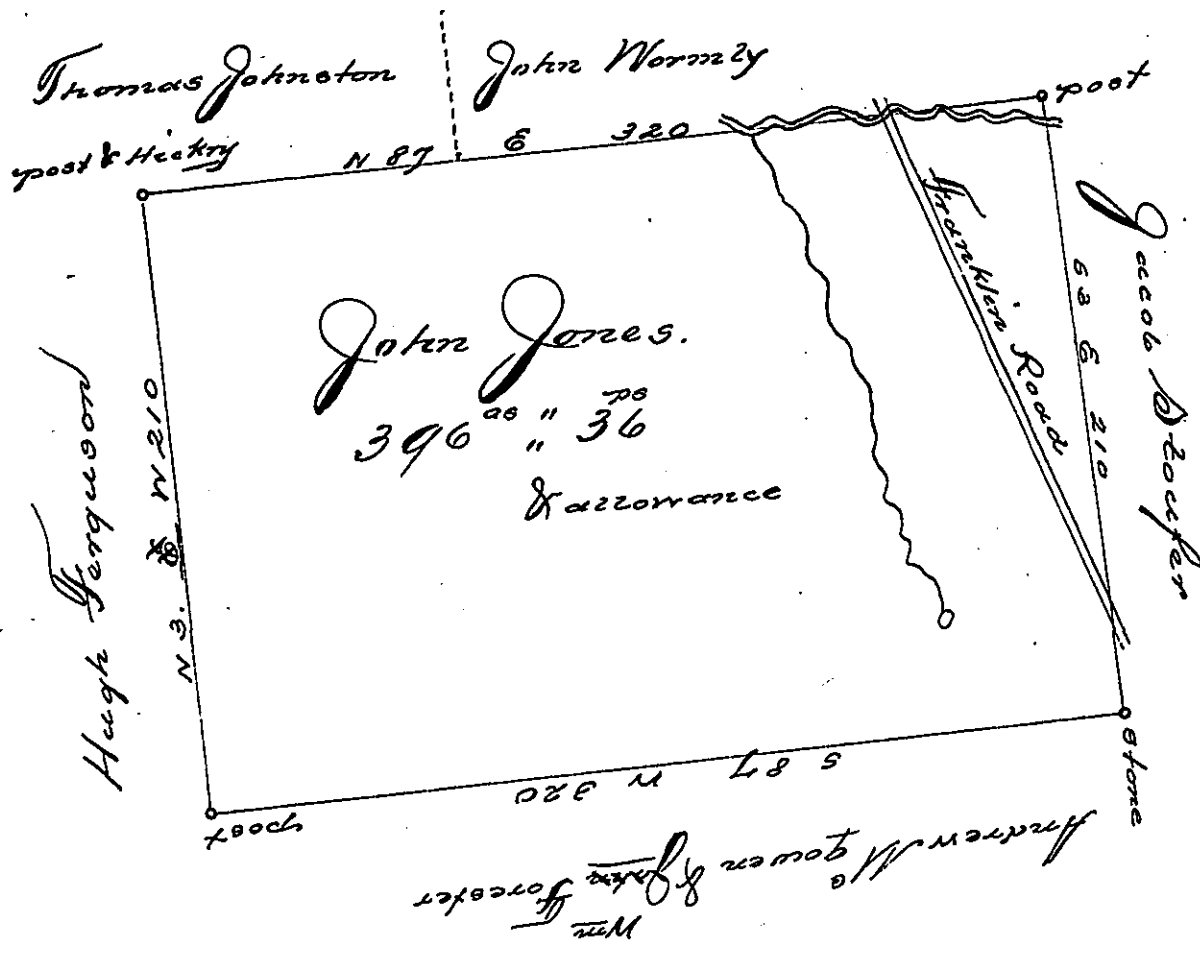 Thomas Johnston
John Wormly
post & Hickry
N 87 E 320
post
Jacob Stoufer
S 3 E 210
Franklin Road
John Jones.
396 as " 36 ps
"
& allowance
Hugh Ferguson
N 3. W 210
post
S 87 W 320
stone
Andrew Mc gowen & John Forester
Wm